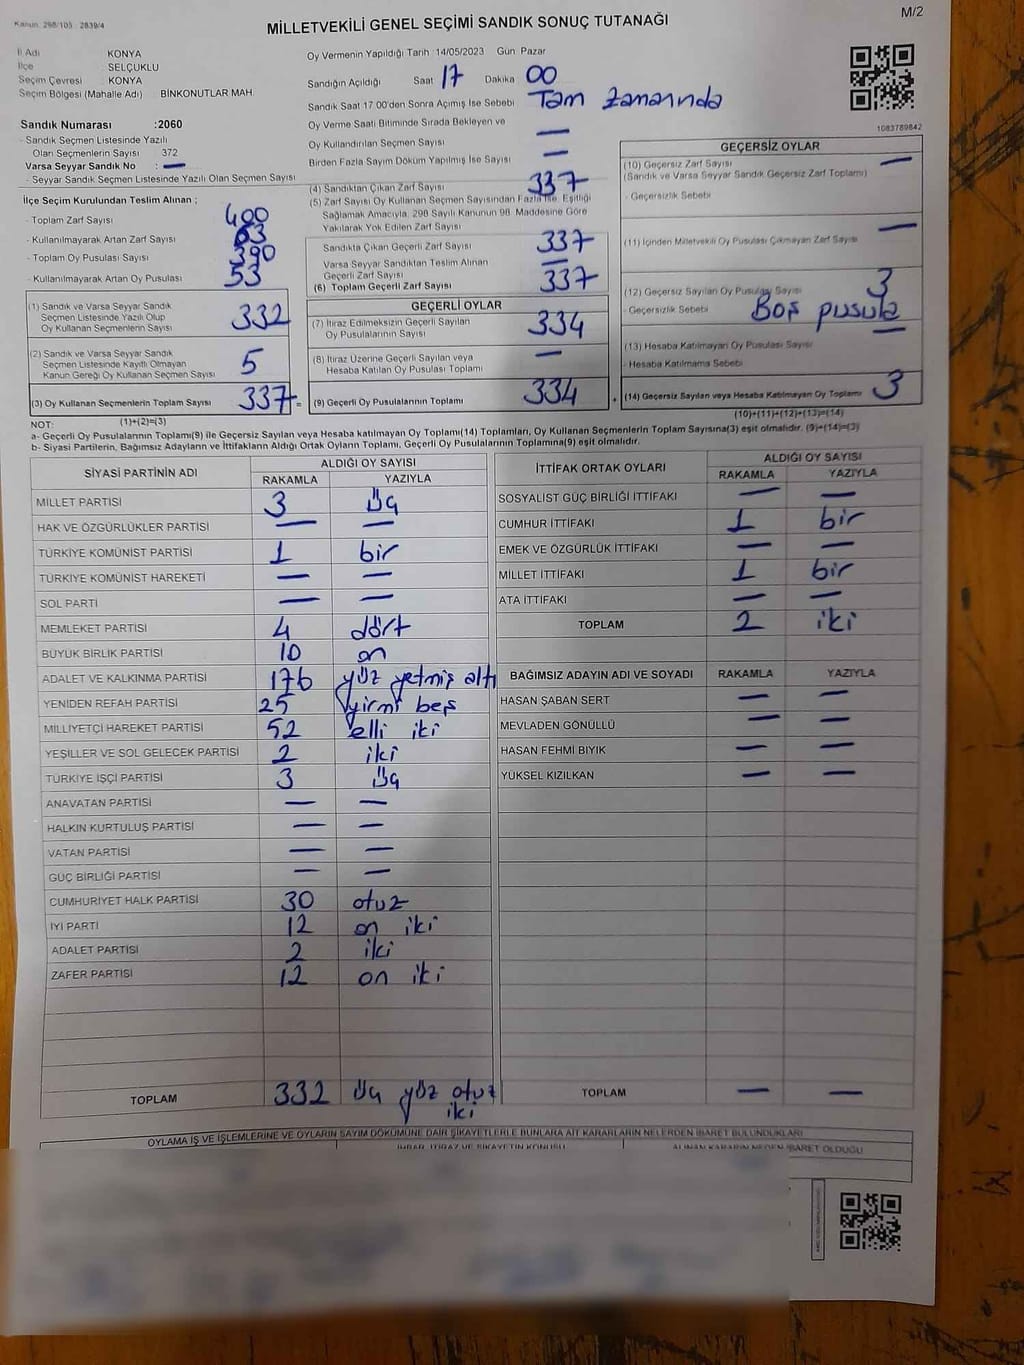 Kanun: 298/105 - 2839/4
MİLLETVEKİLİ GENEL SEÇİMİ SANDIK SONUÇ TUTANAĞI
M/2
İl Adı KONYA
İlçe SELÇUKLU
Seçim Çevresi KONYA
Seçim Bölgesi (Mahalle Adı) BİNKONUTLAR MAH.
Sandık Numarası :2060
- Sandık Seçmen Listesinde Yazılı
Olan Seçmenlerin Sayısı 372
Varsa Seyyar Sandık No : —
- Seyyar Sandık Seçmen Listesinde Yazılı Olan Seçmen Sayısı
İlçe Seçim Kurulundan Teslim Alınan ;
- Toplam Zarf Sayısı 400
- Kullanılmayarak Artan Zarf Sayısı 63
- Toplam Oy Pusulası Sayısı 390
- Kullanılmayarak Artan Oy Pusulası 53
(1) Sandık ve Varsa Seyyar Sandık
Seçmen Listesinde Yazılı Olup
Oy Kullanan Seçmenlerin Sayısı 332
(2) Sandık ve Varsa Seyyar Sandık
Seçmen Listesinde Kayıtlı Olmayan
Kanun Gereği Oy Kullanan Seçmen Sayısı 5
(3) Oy Kullanan Seçmenlerin Toplam Sayısı 337 =
(1)+(2)=(3)
Oy Vermenin Yapıldığı Tarih : 14/05/2023 Gün Pazar
Sandığın Açıldığı Saat 17 Dakika 00
Sandık Saat 17.00'den Sonra Açımış İse Sebebi Tam zamanında
Oy Verme Saati Bitiminde Sırada Bekleyen ve
Oy Kullandırılan Seçmen Sayısı —
Birden Fazla Sayım Döküm Yapılmış İse Sayısı —
(4) Sandıktan Çıkan Zarf Sayısı 337
(5) Zarf Sayısı Oy Kullanan Seçmen Sayısından Fazla İse, Eşitliği
Sağlamak Amacıyla, 298 Sayılı Kanunun 98. Maddesine Göre
Yakılarak Yok Edilen Zarf Sayısı
Sandıkta Çıkan Geçerli Zarf Sayısı 337
Varsa Seyyar Sandıktan Teslim Alınan
Geçerli Zarf Sayısı —
(6) Toplam Geçerli Zarf Sayısı 337
GEÇERLİ OYLAR
(7) İtiraz Edilmeksizin Geçerli Sayılan
Oy Pusulalarının Sayısı 334
(8) İtiraz Üzerine Geçerli Sayılan veya
Hesaba Katılan Oy Pusulası Toplamı —
(9) Geçerli Oy Pusulalarının Toplamı 334 +
1083789842
GEÇERSİZ OYLAR
(10) Geçersiz Zarf Sayısı —
(Sandık ve Varsa Seyyar Sandık Geçersiz Zarf Toplamı)
- Geçersizlik Sebebi
(11) İçinden Milletvekili Oy Pusulası Çıkmayan Zarf Sayısı —
(12) Geçersiz Sayılan Oy Pusulası Sayısı 3
- Geçersizlik Sebebi Boş pusula
(13) Hesaba Katılmayan Oy Pusulası Sayısı —
- Hesaba Katılmama Sebebi
(14) Geçersiz Sayılan veya Hesaba Katılmayan Oy Toplamı 3
(10)+(11)+(12)+(13)=(14)
NOT:
a- Geçerli Oy Pusulalarının Toplamı(9) ile Geçersiz Sayılan veya Hesaba Katılmayan Oy Toplamı(14) Toplamları, Oy Kullanan Seçmenlerin Toplam Sayısına(3) eşit olmalıdır. (9)+(14)=(3)
b- Siyasi Partilerin, Bağımsız Adayların ve İttifakların Aldığı Ortak Oyların Toplamı, Geçerli Oy Pusulalarının Toplamına(9) eşit olmalıdır.
SİYASİ PARTİNİN ADI ALDIĞI OY SAYISI
RAKAMLA YAZIYLA
MİLLET PARTİSİ 3 üç
HAK VE ÖZGÜRLÜKLER PARTİSİ — —
TÜRKİYE KOMÜNİST PARTİSİ 1 bir
TÜRKİYE KOMÜNİST HAREKETİ — —
SOL PARTİ — —
MEMLEKET PARTİSİ 4 dört
BÜYÜK BİRLİK PARTİSİ 10 on
ADALET VE KALKINMA PARTİSİ 176 yüz yetmiş altı
YENİDEN REFAH PARTİSİ 25 yirmi beş
MİLLİYETÇİ HAREKET PARTİSİ 52 elli iki
YEŞİLLER VE SOL GELECEK PARTİSİ 2 iki
TÜRKİYE İŞÇİ PARTİSİ 3 üç
ANAVATAN PARTİSİ — —
HALKIN KURTULUŞ PARTİSİ — —
VATAN PARTİSİ — —
GÜÇ BİRLİĞİ PARTİSİ — —
CUMHURİYET HALK PARTİSİ 30 otuz
İYİ PARTİ 12 on iki
ADALET PARTİSİ 2 iki
ZAFER PARTİSİ 12 on iki
TOPLAM 332 üç yüz otuz
iki
İTTİFAK ORTAK OYLARI ALDIĞI OY SAYISI
RAKAMLA YAZIYLA
SOSYALİST GÜÇ BİRLİĞİ İTTİFAKI — —
CUMHUR İTTİFAKI 1 bir
EMEK VE ÖZGÜRLÜK İTTİFAKI — —
MİLLET İTTİFAKI 1 bir
ATA İTTİFAKI — —
TOPLAM 2 iki
BAĞIMSIZ ADAYIN ADI VE SOYADI RAKAMLA YAZIYLA
HASAN ŞABAN SERT — —
MEVLADEN GÖNÜLLÜ — —
HASAN FEHMİ BIYIK — —
YÜKSEL KIZILKAN — —
TOPLAM — —
OYLAMA İŞ VE İŞLEMLERİNE VE OYLARIN SAYIM DÖKÜMÜNE DAİR ŞİKAYETLERLE BUNLARA AİT KARARLARIN NELERDEN İBARET BULUNDUKLARI
İHBAR, İTİRAZ VE ŞİKAYETİN KONUSU ALINAN KARARIN NEDEN İBARET OLDUĞU